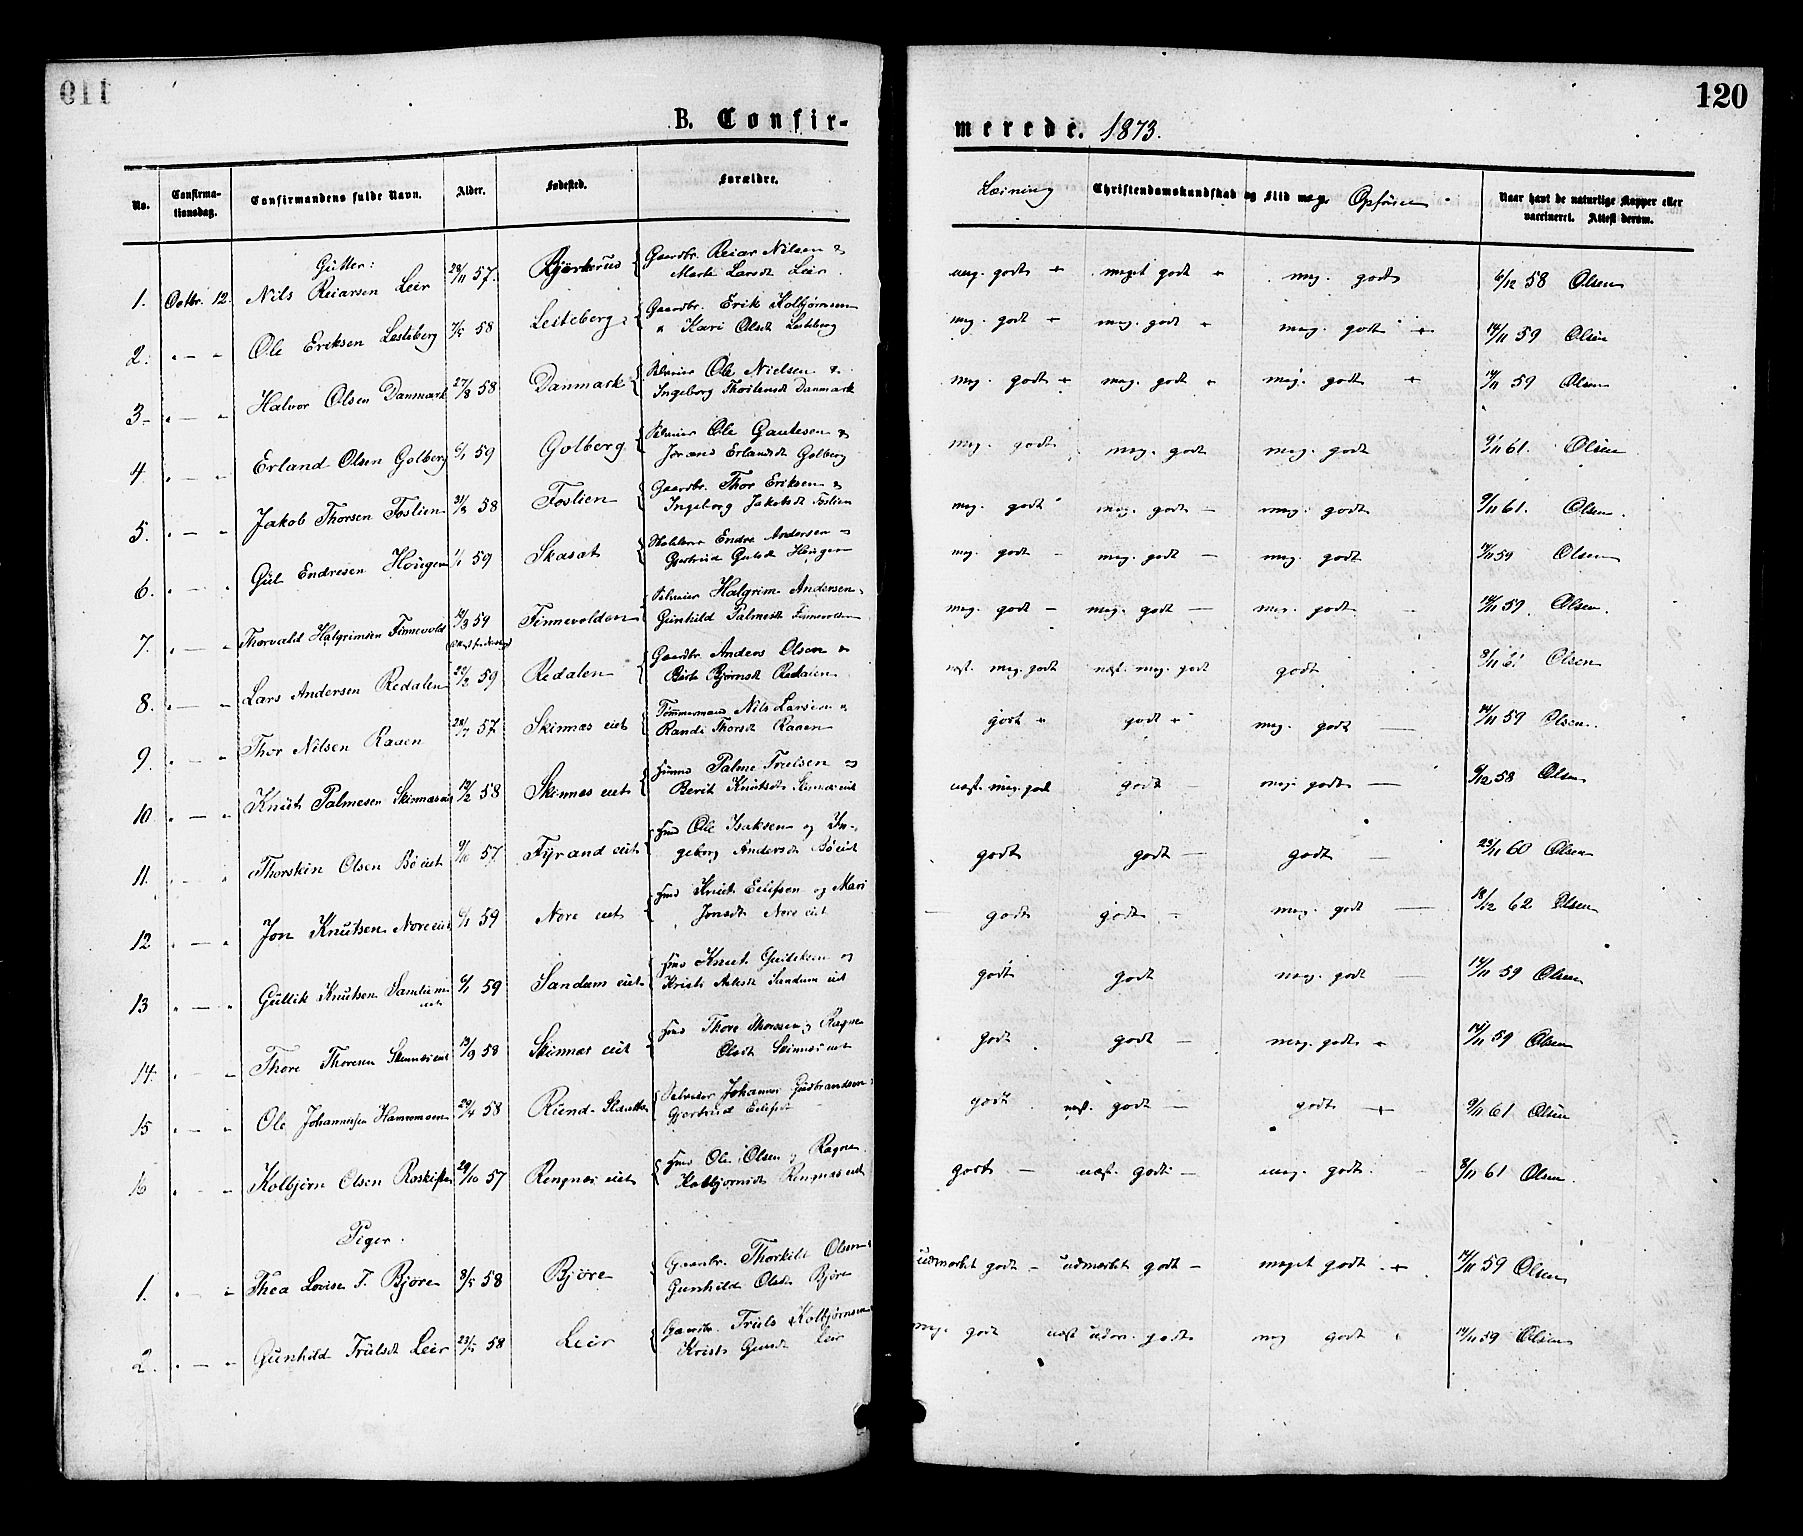 120
B. Confir-
merede. 1873.
No.
Confirma-
tionsdag.
Confirmandens fulde Navn.
Alder.
Fødested.
Forældre.
Læsning
Christendomskundskab og Flid
Opførsel
Naar havt de naturlige Kopper eller
vaccineret. Attest derom.
Gutter:
1. Octbr. 12. Nils Reiarsen Leir 28/11 57. Bjørkerud Gaardbr. Reiar Nilsen &
Marte Larsdt Leir meg. godt + meget godt + meg. godt 6/12 58 Olsen
2. " — " Ole Eriksen Lesteberg 7/5 58 Lesteberg Gaardbr. Erik Kolbjørnsen
" Kari Olsdt Lesteberg meg. godt + meg. godt + meg. godt + 14/11 59 Olsen
3 " — " Halvor Olsen Danmark 27/8 58 Danmark Selveier Ole Nielsen &
Ingeborg Danmark meg. godt + meg. godt + meg. godt + 14/11 59 Olsen
4. " — " Erland Olsen Golberg 6/1 59 Golberg Selveier Ole Gautesen &
Jørand Erlandsdt Golberg meg. godt meg. godt meg. godt 9/11 61. Olsen
5. " — " Jakob Thorsen Foslien 31/3 58 Foslien Gaardbr. Thor Eriksen &
Ingeborg Jakobsdt Foslien meg. godt meg. godt — meg. godt 9/11 61. Olsen.
6. " — " Gul Endresen Hougen 1/1 59 Skasat Endre Andersen
Gjertrud Gulsdt Hougen meg. godt — meg. godt — meg. godt 59 Olsen
7. " — " Thorvald Halgrimsen Finnevold 59 Finnevolden Selveier Halgrim Andersen
Gunhild Palmesdt Finnevolden meg. godt — meg. godt — meg. godt 14/11 59. Olsen.
8. " — " Lars Andersen Redalen 22/2 59 Redalen Gaardbr. Anders Olsen &
Birte Bjørnsdt Redalen næst. meg. godt næst. meg. godt godt 9/11 61 Olsen
9. " — " Thor Nilsen Raaen 57 Skinnæs eiet Tømmermand Nils Larsen &
Randi Thorsdt Raaen godt + godt + meg. godt — 14/11 59 Olsen.
10. " — " Knut Palmesen Skinnæs eiet 12/2 58 Skinnæs eiet Palme Trulsen og
Berit Knutsdt Skinnæs eiet næst. meg. godt godt — meg. godt — 6/12 58 Olsen
11. " — " Thorstein Olsen Bø eiet 9/10 57 Fyrand eiet Hmd Ole Isaksen og In-
geborg Andersdt Bø eiet godt godt — godt — 23/11 60 Olsen
12 " — " Jon Knutsen Nore eiet 6/1 59 Nore eiet Hmd Knut Eilifsen og Mari
Jonsdt Nore eiet godt godt — meg. godt — 18/12 62 Olsen
13 " — " Gullik Knutsen Sandum
eiet 6/1 59 Sandum eiet Hmd Knut Gulliksen og
Kristi Sandum eiet godt godt meg. godt — 14/11 59 Olsen
14. " — " Thore Thoresen Skinnæs eiet 13/9 58 Skinnæs eiet Hmd Thore Thoresen og Ragne
Olsdt Skinnæs eiet godt godt — meg. godt + 14/11 59 Olsen
15 " — " Ole Johannessen 29/4 58 Rund Selveier Johannes Gudbrandsen
Gjertrud godt næst. godt — godt + 9/11 61 Olsen
16 " — " Kolbjørn Olsen 29/10 57 Rengnæs eiet Hmd Ole Olsen og Ragne
Kolbjørnsdt Rengnæs eiet godt — næst. godt — meg. godt 8/11 61 Olsen.
Piger.
1. " — " Thea Lovise T. Bjøre 8/5 58 Bjøre Gaardbr. Thorkild Olsen &
Gunhild Olsdt Bjøre udmærket godt — udmærket godt — meget godt + 14/11 59 Olsen
2. " — " Gunhild Trulsdt Leir 23/5 58 Leir Gaardbr. Truls Kolbjørnsen
Kristi Gulsdt Leir meg. godt næst udm. godt meg godt 14/11 59 Olsen